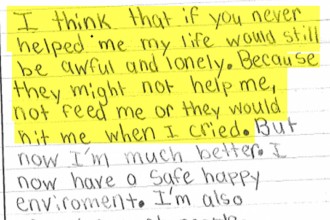 I think that if you never
helped me my life would still
be awful and lonely. Because
they might not help me,
not feed me or they would
hit me when I cried. But
now I'm much better. I
now have a safe happy
enviroment. I'm also